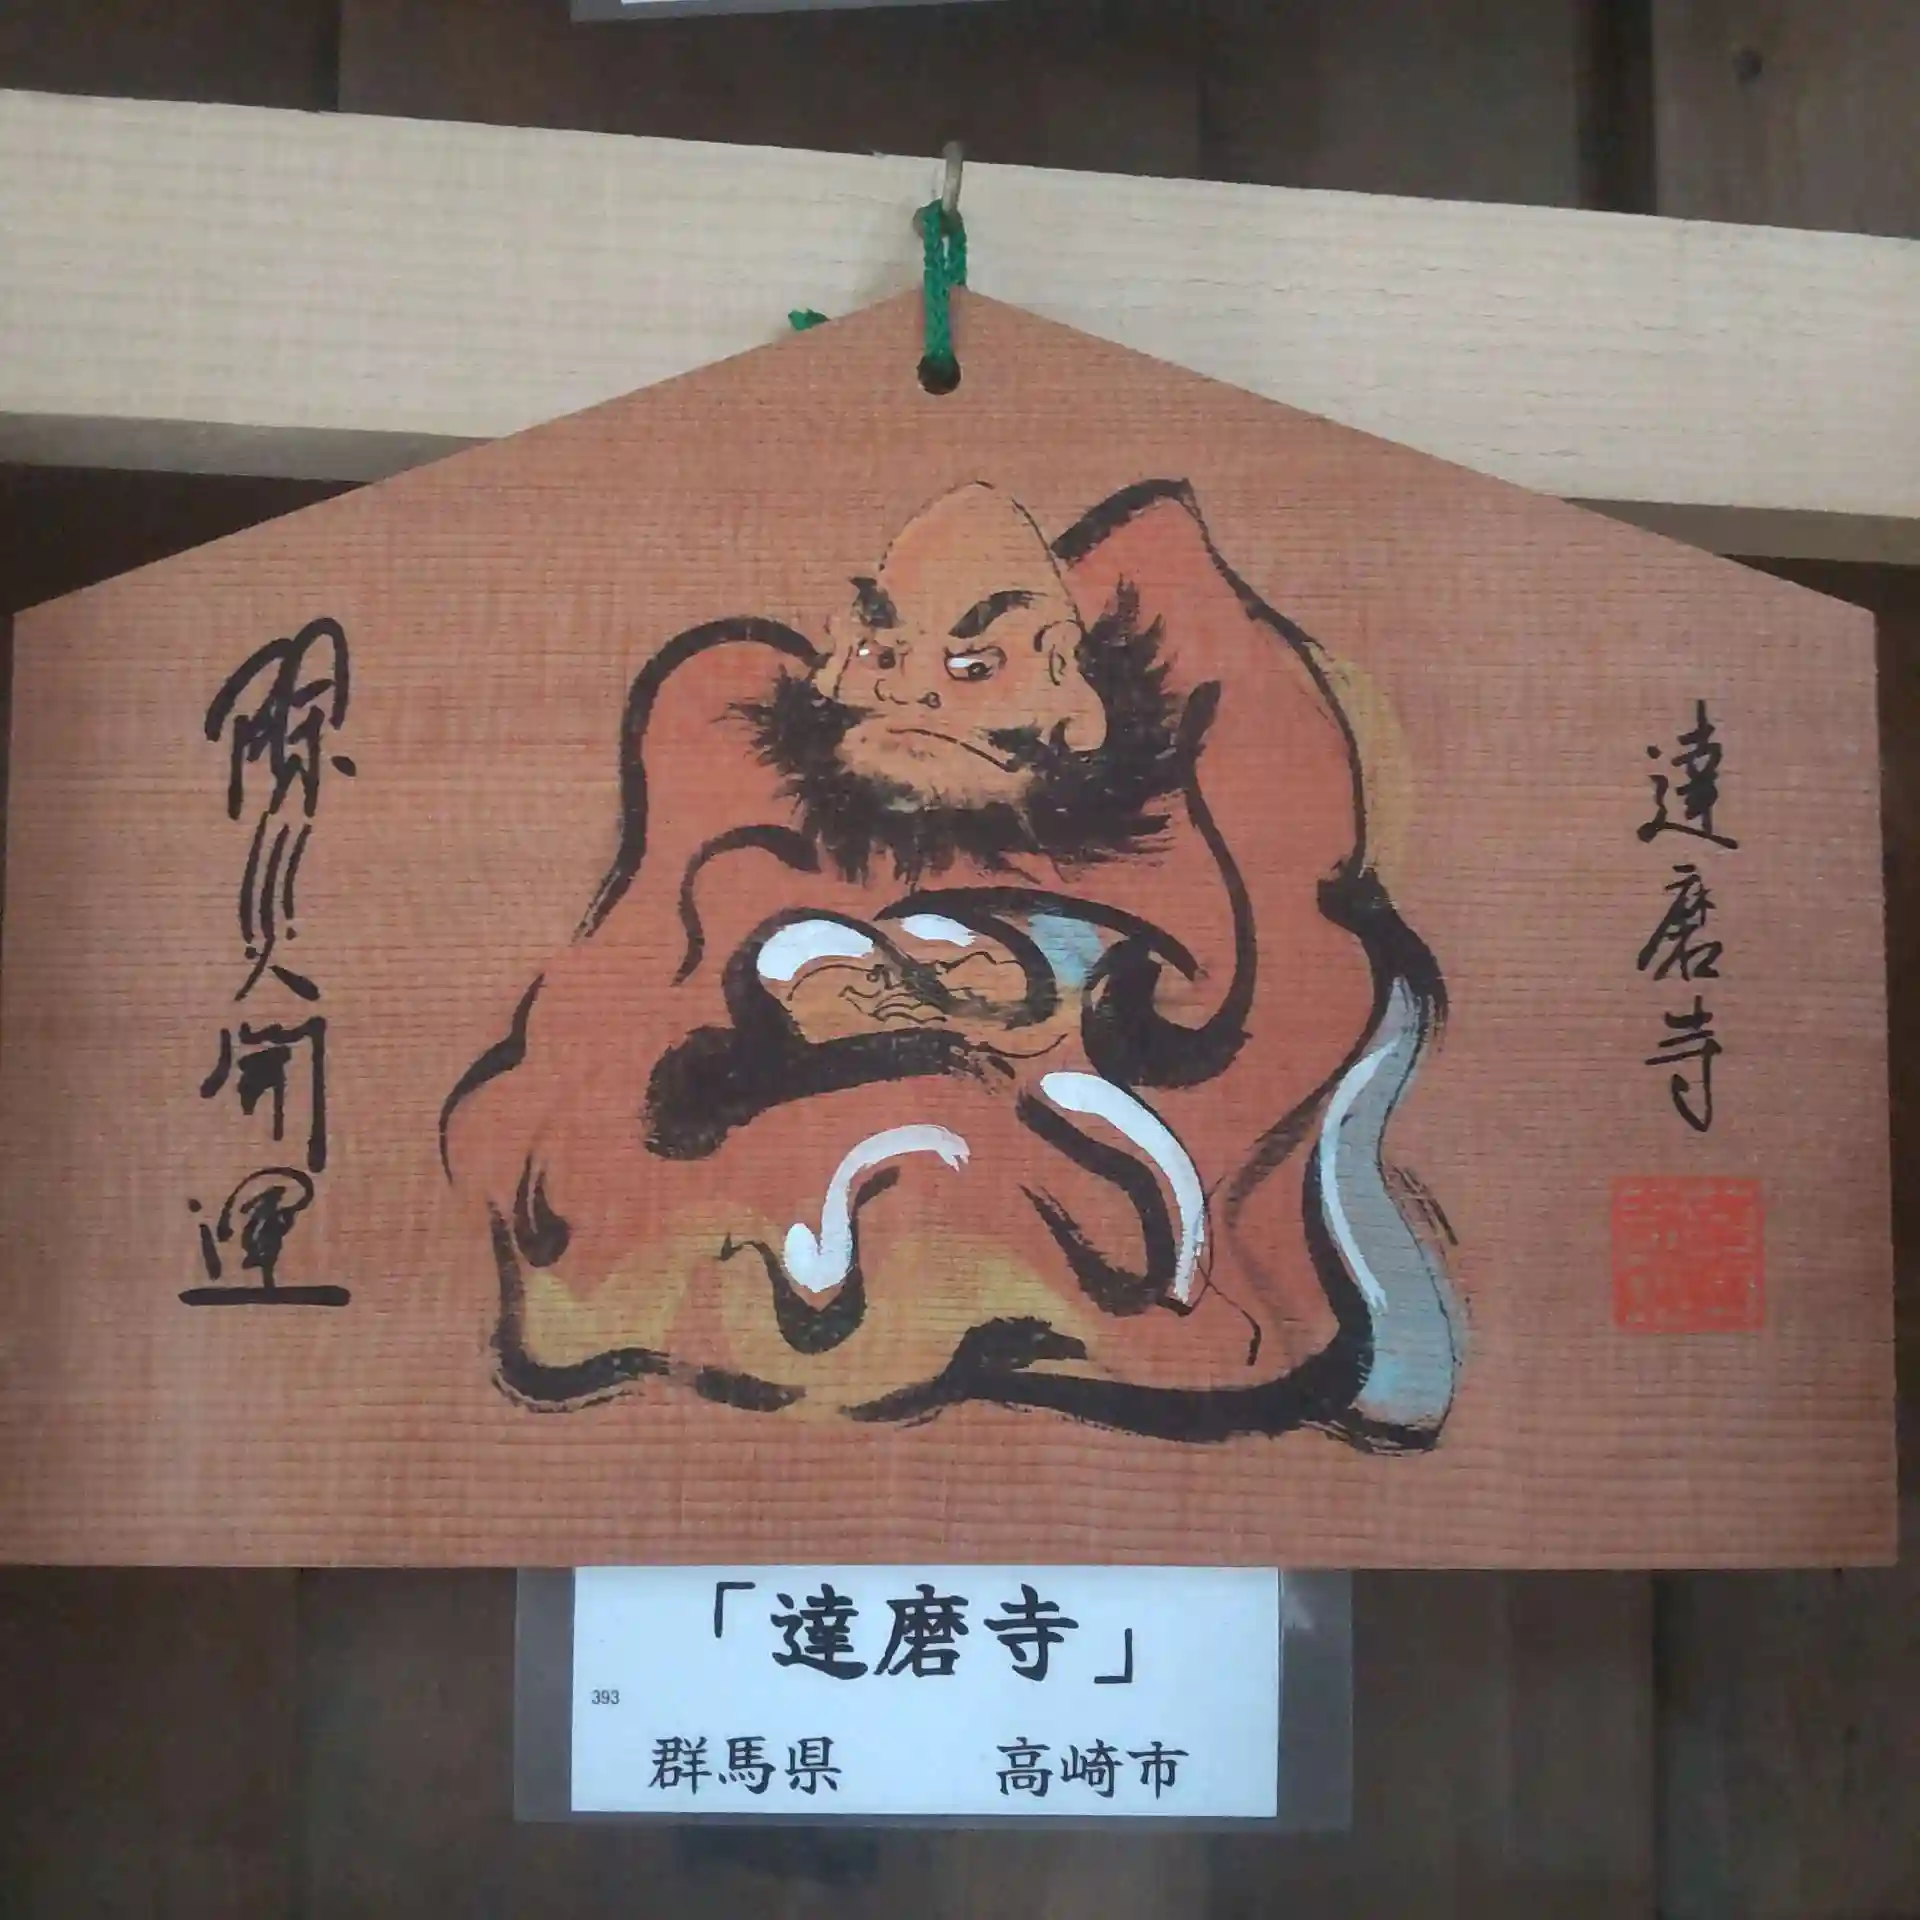 達磨寺
除災開運
「達磨寺」
393
群馬県 高崎市